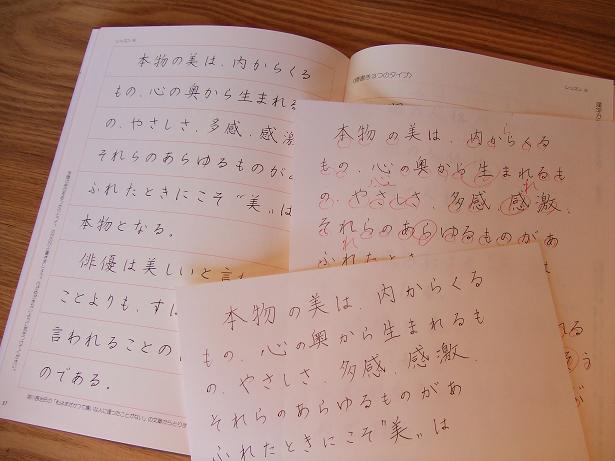 レッスン
本物の美は、内からくる
もの、心の奥から生まれる
の、やさしさ、多感、感激
それらのあらゆるものが
ふれたときにこそ〝美〟は
本物となる。
俳優は美しいと言わ
ことよりも、す
言われることの
のである。
37
レッスン
本物の美は、内からくる
もの、心の奥から生まれるも
の、やさしさ、多感、感激、
それらのあらゆるものがあ
ふれたとき
本物の美は、内からくる
もの、心の奥から生まれるも
の、やさしさ、多感、感激、
それらのあらゆるものがあ
ふれたときにこそ〝美〟は